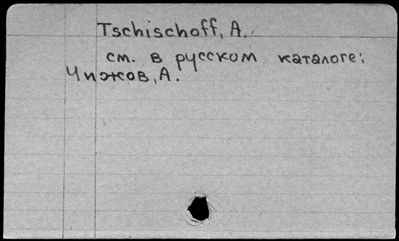 Tschischoff, A.
см. в русском каталоге:
Чижов, А.